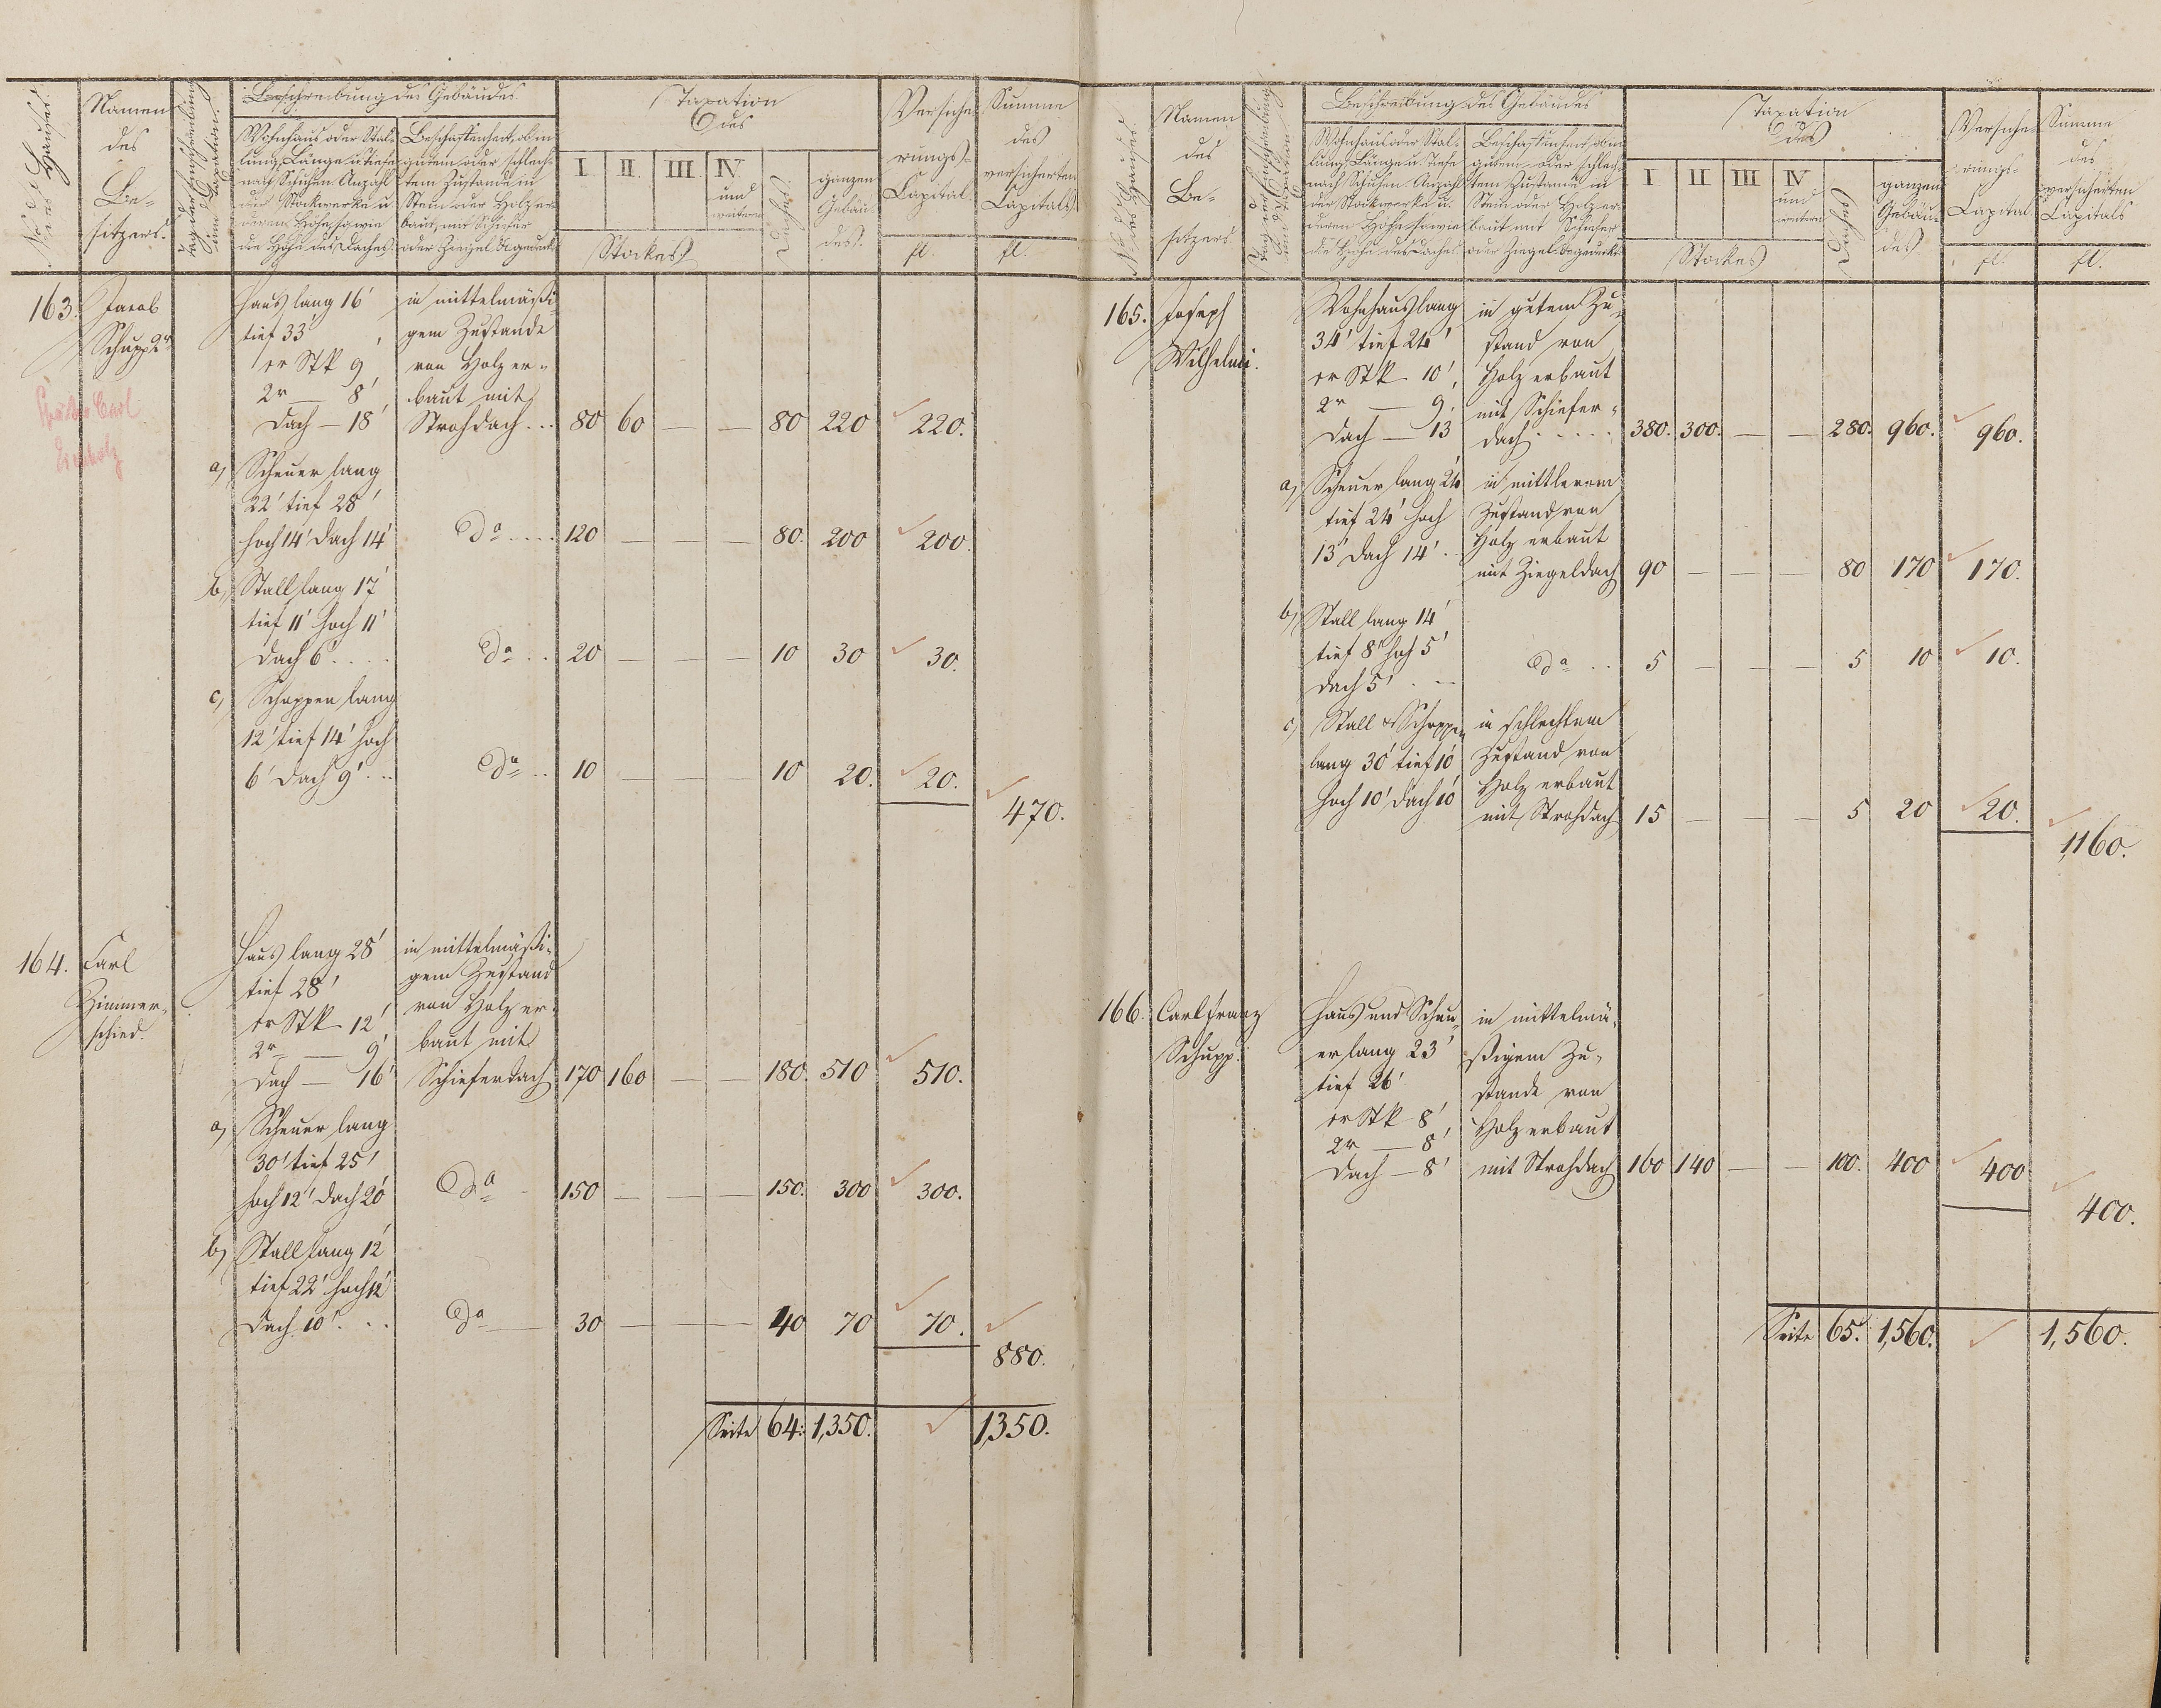 No des Hauses.
Namen
des
Be-
sitzers.
Tag der Einschreibung
und Taxation.
Beschreibung des Gebäudes
Wohnhaus oder Stal-
lung, Länge u. Tiefe
nach Schuhen Anzahl
der Stockwerke u.
deren Höhe, sowie
die Höhe des Daches
Beschaffenheit, ob in
gutem oder schlech-
tem Zustande in
Stein oder Holz er-
baut, mit Schiefer
oder Ziegel &c gedeckt
Taxation
des
I. II. III. IV.
und
weiteren
Stockes
Daches
ganzen
Gebäu-
des.
Versiche-
rungs-
Capital.
fl.
Summe
des
versicherten
Capitals
fl.
163. Jacob
Schupp 2r
Später Carl
Haus lang 16' in mittelmäßi-
tief 33' gem Zustande
1r Stk 9' von Holz er-
2r — 8' baut mit
Dach — 18' Strohdach... 80 60 — — 80 220 220.
a) Scheuer lang
22' tief 28'
hoch 14' Dach 14' do .... 120 — — — 80. 200 200.
b) Stall lang 17'
tief 11' hoch 11'
Dach 6'.... do .. 20 — — — 10 30 30.
c) Schoppen lang
12' tief 14' hoch
6' Dach 9'... do .. 10 — — — 10 20. 20.
470.
164. Carl
Zimmer-
schied.
Haus lang 28' in mittelmäßi-
tief 28' gem Zustand
1r Stk 12' von Holz er-
2r — 9' baut mit
Dach — 16' Schieferdach 170 160 — — 180. 510 510.
a) Scheuer lang
30' tief 25'
hoch 12' Dach 20' do 150 — — — 150. 300 300.
b) Stall lang 12'
tief 22' hoch 12'
Dach 10'... do 30 — — — 40 70 70.
880.
Seite 64: 1,350. 1,350.
No des Hauses.
Namen
des
Be-
sitzers
Tag der Einschreibung
und Taxation
Beschreibung des Gebäudes
Wohnhaus oder Stal-
lung, Länge u. Tiefe
nach Schuhen Anzahl
der Stockwerke u.
deren Höhe sowie
die Höhe des Daches
Beschaffenheit ob in
gutem oder schlech-
tem Zustande in
Stein oder Holz er-
baut mit Schiefer
oder Ziegel &c gedeckt
Taxation
des
I II III IV
und
weiteren
Stockes
Daches
ganzen
Gebäu-
des
Versiche-
rungs-
Capital.
fl.
Summe
des
versicherten
Capitals
fl.
165. Joseph
Wilhelmi.
Wohnhaus lang in gutem Zu-
34' tief 24' stand von
1r Stk 10' Holz erbaut
2r — 9' mit Schiefer-
Dach — 13 dach..... 380. 300. — — 280. 960. 960.
a) Scheuer lang 24' in mittlerem
tief 24' hoch Zustand von
13' Dach 14'.. Holz erbaut
mit Ziegeldach 90 — — — 80 170 170.
b) Stall lang 14'
tief 8' hoch 5'
Dach 5'. — do .. 5 — — — 5 10 10.
c) Stall & Schoppen in schlechtem
lang 30' tief 10' Zustand von
hoch 10' Dach 10' Holz erbaut
mit Strohdach 15 — — — 5 20 20.
1,160.
166. Carl Franz
Schupp.
Haus und Scheu- in mittelmä-
er lang 23' ßigem Zu-
tief 26' stande von
1r Stk 8' Holz erbaut
2r — 8'
Dach — 8' mit Strohdach 160 140 — — 100. 400 400
400.
Seite 65. 1,560. 1,560.